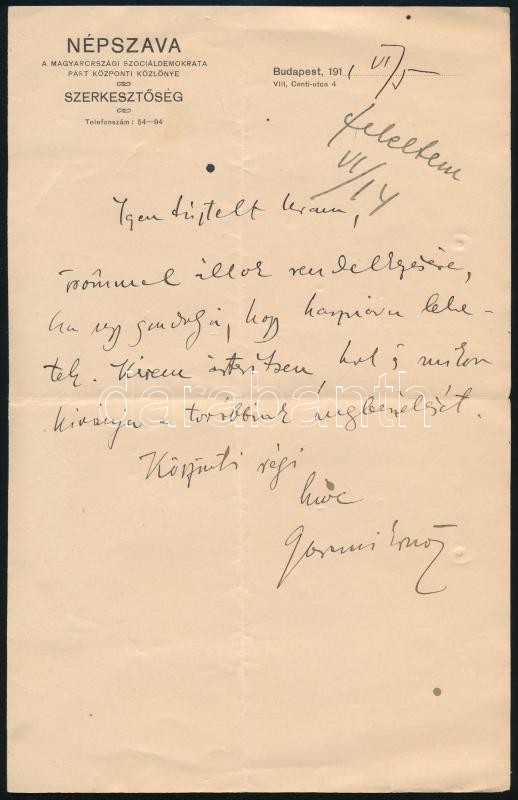 NÉPSZAVA
A MAGYARORSZÁGI SZOCIÁLDEMOKRATA
PÁRT KÖZPONTI KÖZLÖNYE
SZERKESZTŐSÉG
Telefonszám: 54—94
Budapest, 191 VI/5
VIII, Conti-utca 4
feleltem
VI/14
Igen tisztelt Uram,
örömmel állok rendelkezésére,
ha ugy gondolja, hogy hasznára lehe-
tek. Kérem értesitsen, hol s mikor
kivánja a továbbiak megbeszélését.
Köszönti régi
hive
Garami Ernő
darabanth.com